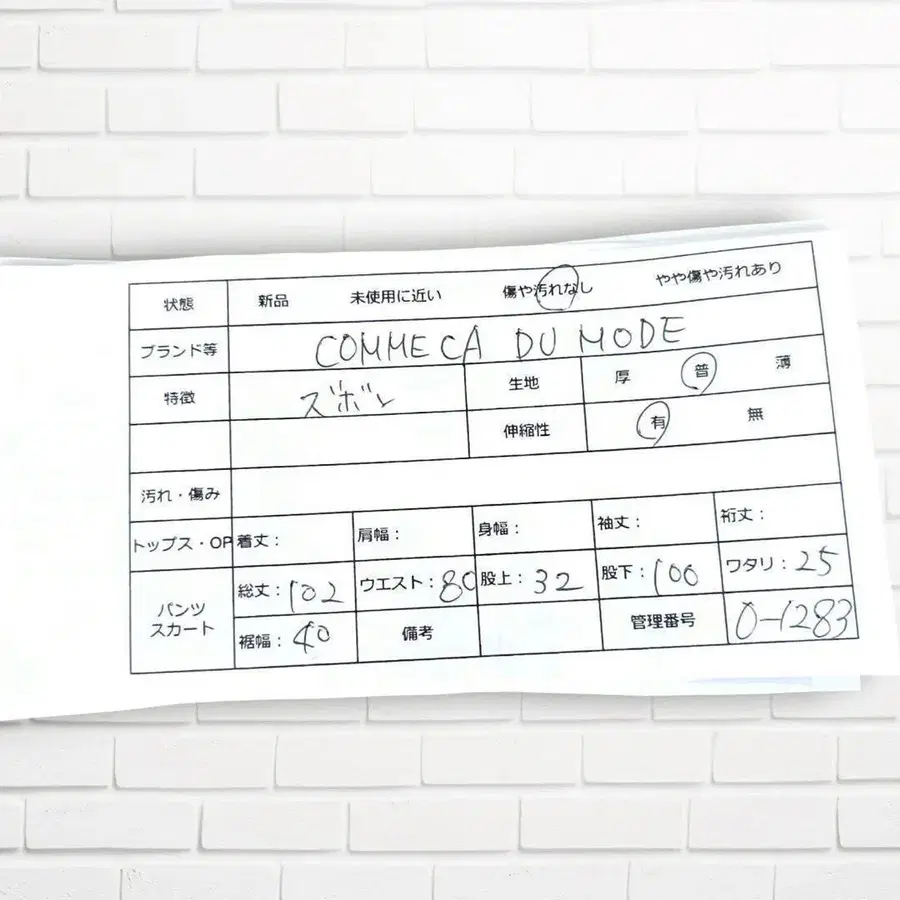 状態 新品 未使用に近い 傷や汚れなし やや傷や汚れあり
ブランド等 COMME CA DU MODE
特徴 ズボン 生地 厚 普 薄
伸縮性 有 無
汚れ・傷み
トップス・OP 着丈: 肩幅: 身幅: 袖丈: 裄丈:
パンツ スカート 総丈:102 ウエスト:80 股上:32 股下:100 ワタリ:25
裾幅:40 備考 管理番号 0-1283